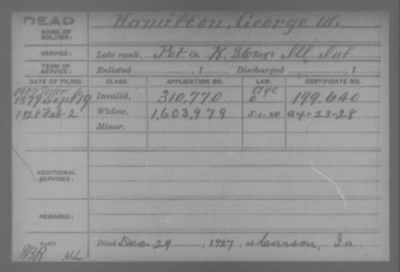 DEAD
NAME OF SOLDIER:
Hamilton, George W.
SERVICE:
Late rank, Pvt Co. K. Regt Ill Inf
TERM OF SERVICE:
Enlisted , 1 Discharged , 1
DATE OF FILING. CLASS. APPLICATION NO. LAW. CERTIFICATE NO.
Age
1879 Sept 19 Invalid, 310,770 199.640
1928 Feb-2 Widow, 1,603,979 5-1-20 A4-23-28
Minor,
ADDITIONAL SERVICES:
REMARKS:
Died Dec 29, 1927, at Carson, Ia.